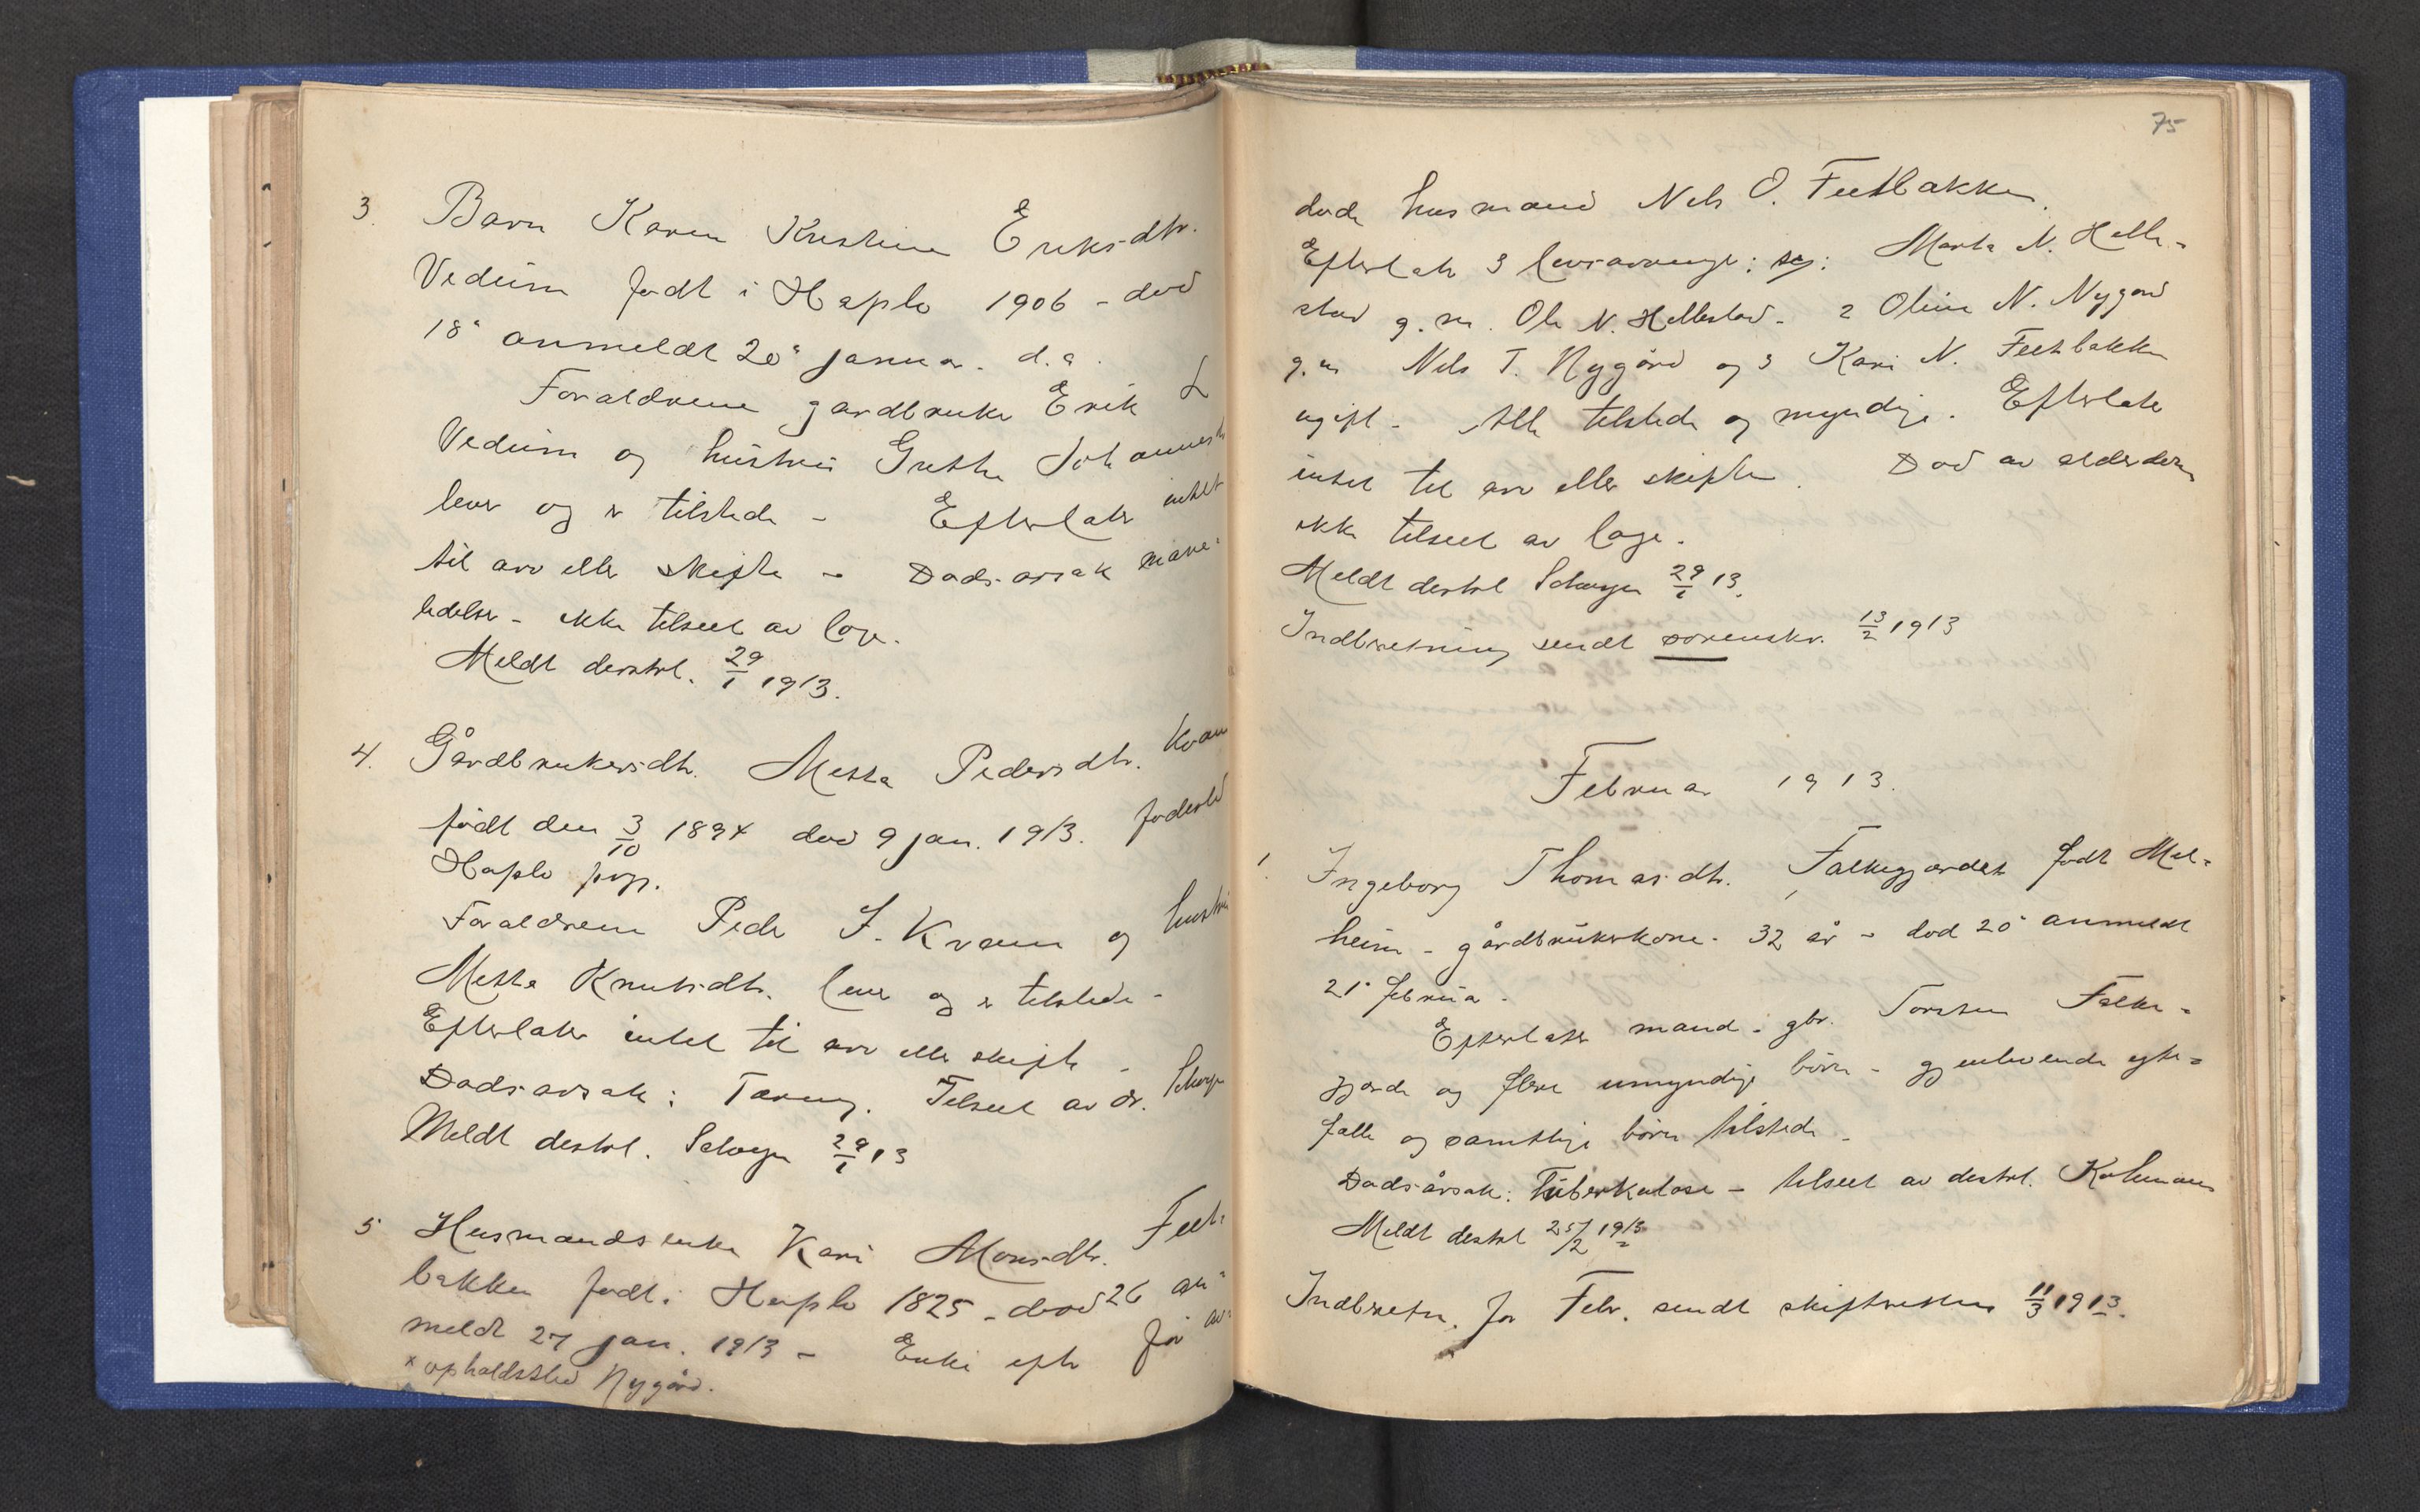 3. Barn Karen Kristine Eriksdtr.
Vedum født i Hafslo 1906 - død
18' anmeldt 20' januar. d.a.
Forældrene gardbruker Erik L
Vedum og hustru Grethe Johannesdtr
lever og er tilstede - Efterlater intet
til arv eller skifte - Dødsårsak mave-
lidelse - ikke tilseet av læge.
Meldt destrl. 29/1 1913.
4. Gårdbrukersdtr. Metta Pedersdtr. Kvam
født den 3/10 1894 død 9 jan. 1913. fødested
Hafslo prgj.
Forældrene Peder J. Kvam og hustru
Metta Knutsdtr. lever og er tilstede -
Efterlater intet til arv eller skifte -
Dødsårsak: Tæring. Tilseet av dr. Schøyen
Meldt destrl. Schøyen 29/1 13
5 Husmandsenke Kari Monsdtr. Feet-
bakken født i Hafslo 1825 - død 26 an-
meldt 27 jan. 1913 - Enke efter før av-
x opholdssted Nygård.
75
døde husmand Nels O. Feetbakken.
Efterlater 3 livsarvinge: Marta N. Helle-
stad g.m. Ole N. Hellestad - 2 Oline N. Nygård
g.m Nels T. Nygård og 3 Kari N. Feetbakken
ugift - Alle tilstede og myndige. Efterlater
intet til arv eller skifte. Død av alderdom
ikke tilseet av læge.
Meldt destrl Schøyen 29/1 13.
Indbretning sendt sorenskr. 13/2 1913
Februar 1913.
1. Ingeborg Thomasdtr. Falkegjærdet født Mel-
heim - gårdbrukerkone - 32 år - død 20' anmeldt
21' februar.
Efterlater mand - gbr. Torsten Falke-
gjerde og flere umyndige børn - gjenlevende egte-
fælle og samtlige børn tilstede -
Dødsårsak: Tuberkulose - tilseet av destrl.
Meldt destrl 25/2 1913
Indbretn. for Febr. sendt skifteretten 11/3 1913.